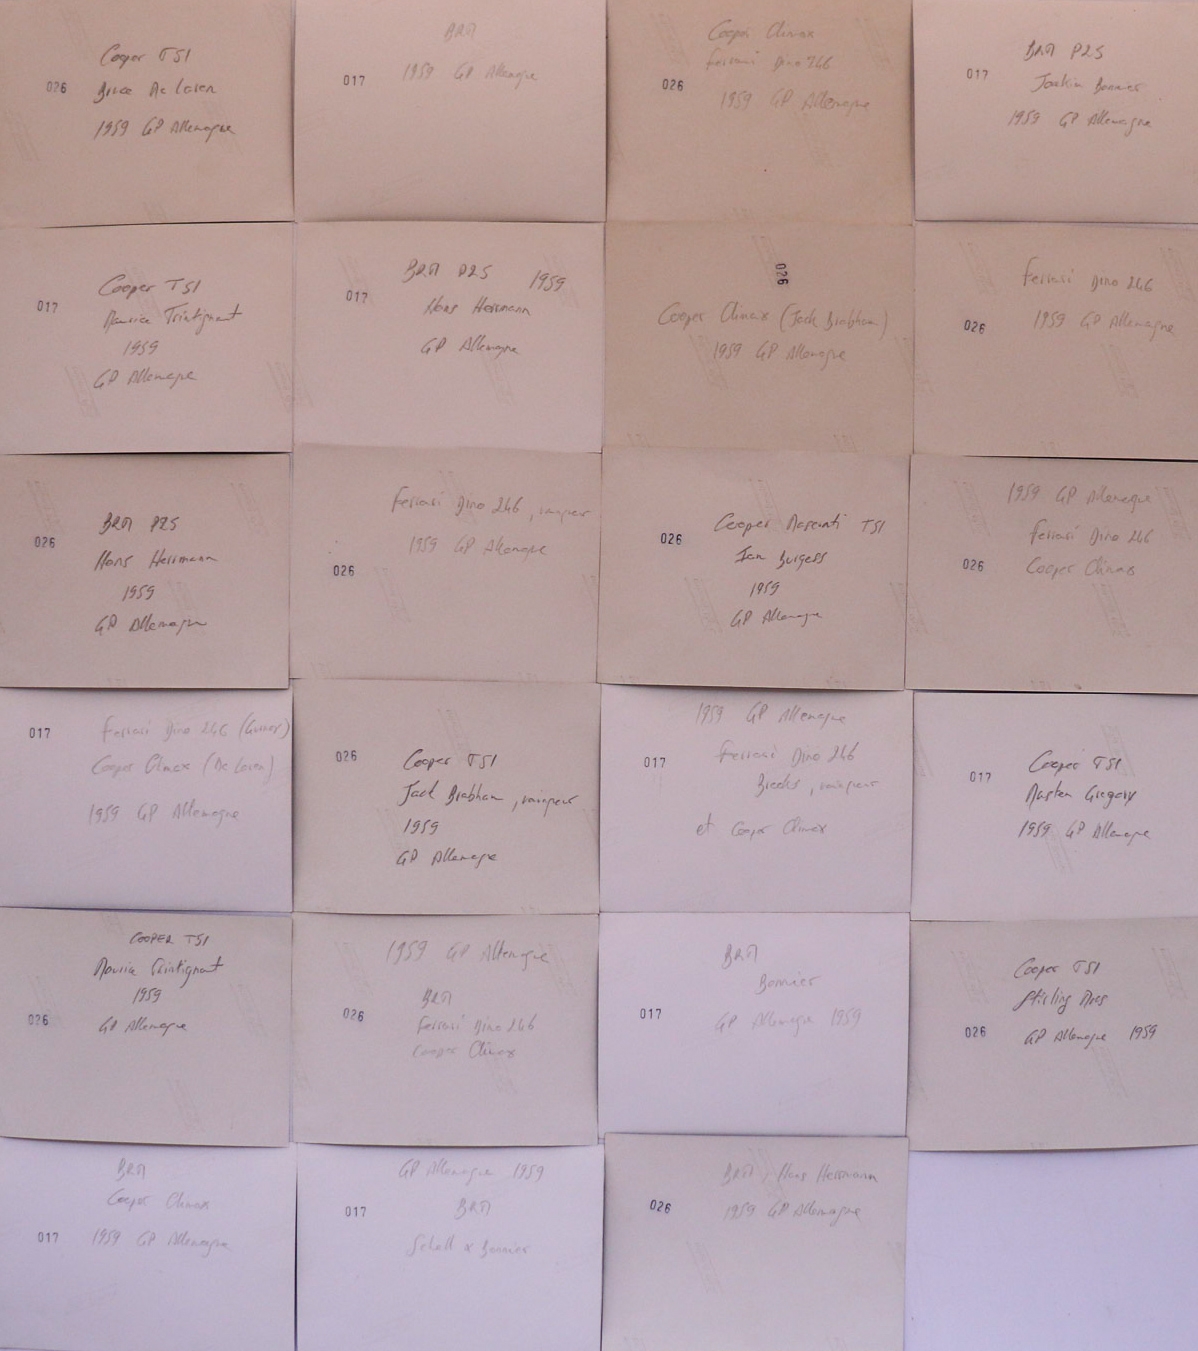 Cooper T51
026 Bruce Mc Laren
1959 GP Allemagne
BRM
017 1959 GP Allemagne
Cooper Climax
Ferrari Dino 246
026
1959 GP Allemagne
BRM P25
017 Joakim Bonnier
1959 GP Allemagne
Cooper T51
017 Maurice Trintignant
1959
GP Allemagne
BRM P25 1959
017 Hans Herrmann
GP Allemagne
026
Cooper Climax (Jack Brabham)
1959 GP Allemagne
Ferrari Dino 246
026 1959 GP Allemagne
BRM P25
026
Hans Herrmann
1959
GP Allemagne
Ferrari Dino 246, vainqueur
1959 GP Allemagne
026
Cooper Maserati T51
026
Ian Burgess
1959
GP Allemagne
1959 GP Allemagne
Ferrari Dino 246
026 Cooper Climax
017 Ferrari Dino 246 (Gurney)
Cooper Climax (Mc Laren)
1959 GP Allemagne
026 Cooper T51
Jack Brabham, vainqueur
1959
GP Allemagne
1959 GP Allemagne
017 Ferrari Dino 246
Brooks, vainqueur
et Cooper Climax
Cooper T51
017
Masten Gregory
1959 GP Allemagne
COOPER T51
Maurice Trintignant
1959
026 GP Allemagne
1959 GP Allemagne
BRM
026 Ferrari Dino 246
Cooper Climax
BRM
Bonnier
017 GP Allemagne 1959
Cooper T51
Stirling Moss
026 GP Allemagne 1959
BRM
Cooper Climax
017 1959 GP Allemagne
GP Allemagne 1959
017 BRM
Schell x Bonnier
BRM, Hans Herrmann
026 1959 GP Allemagne